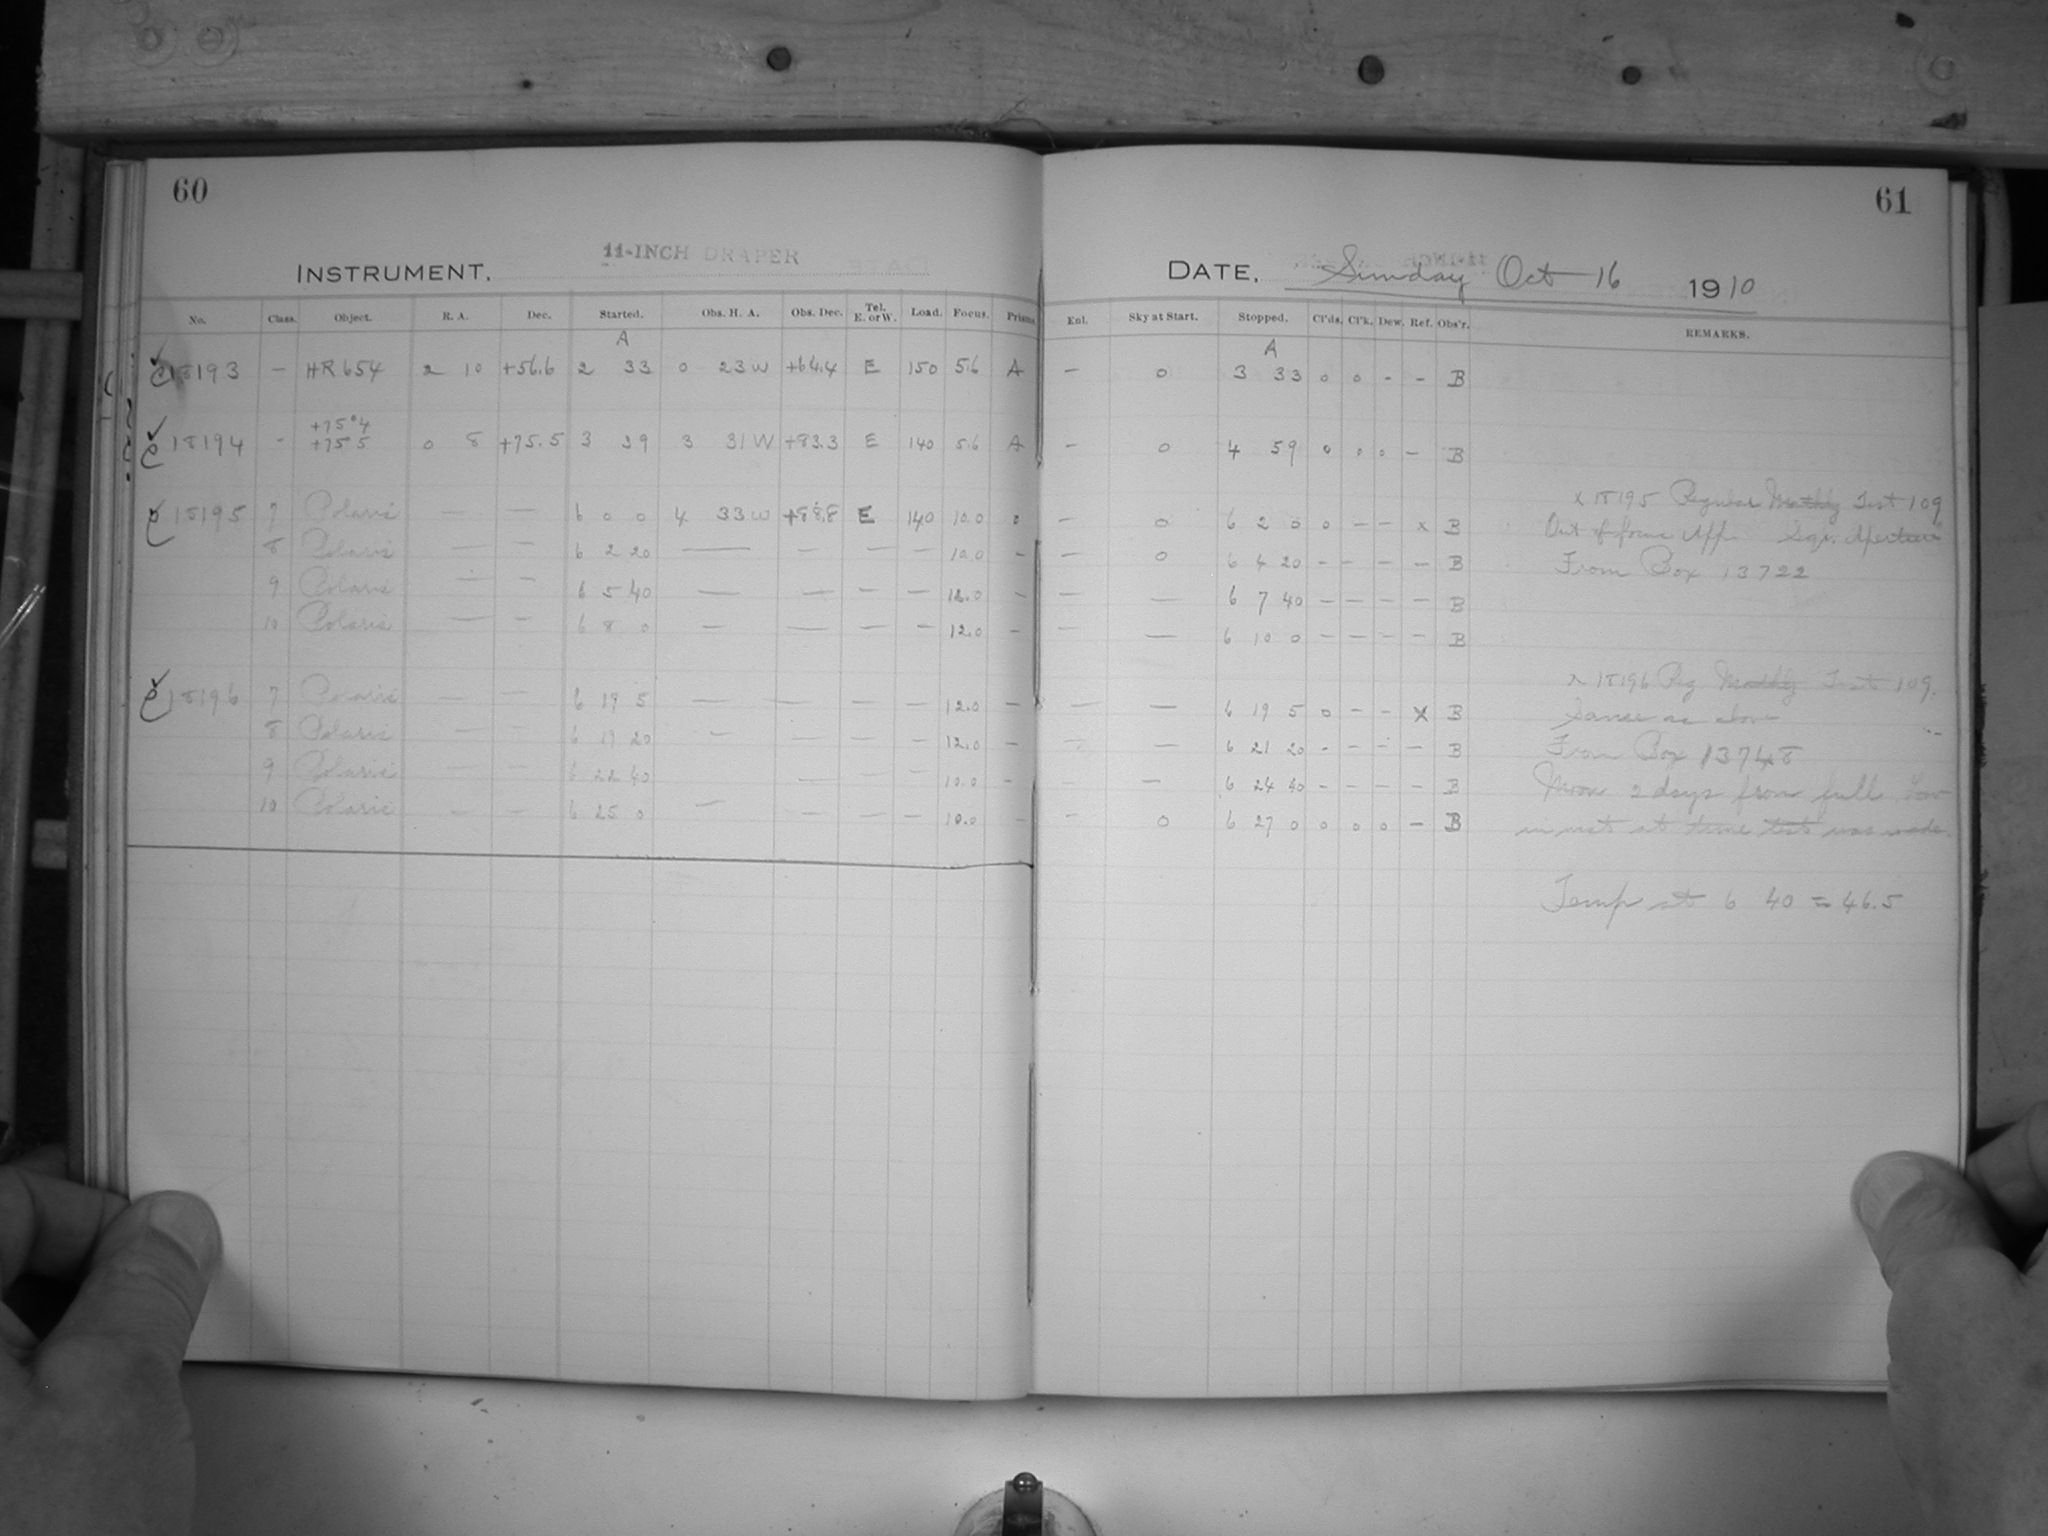 60
61
INSTRUMENT. 11-INCH DRAPER
DATE. Sunday Oct 16 1910
No. Class. Object. R. A. Dec. Started. Obs. H. A. Obs. Dec. Tel. E. or W. Load. Focus. Prisms. Enl. Sky at Start. Stopped. Cl'ds. Cl'k. Dew. Ref. Obs'r. REMARKS.
A A
18193 — HR 654 2 10 +56.6 2 33 0 23 W +64.4 E 150 5.6 A — 0 3 33 0 0 - - B
+75°4
18194 - +75°5 0 8 +75.5 3 39 3 31 W +83.3 E 140 5.6 A — 0 4 59 0 0 0 - B
x 18195 Regular Monthly Test 109
18195 7 Polaris — — 6 0 0 4 33 W +88.8 E 140 10.0 0 — 0 6 2 0 0 — — x B Out of focus App. Sqr. Aperture
8 Polaris — — 6 2 20 — — — — 10.0 — — 0 6 4 20 - - - - B From Box 13722
9 Polaris — — 6 5 40 — — — — 12.0 — — — 6 7 40 — — — — B
10 Polaris — — 6 8 0 — — — — 12.0 — — — 6 10 0 — — — — B
x 18196 Reg. Monthly Test 109.
18196 7 Polaris — — 6 17 5 — — — — 12.0 — — — 6 19 5 0 - - x B Same as above
8 Polaris — — 6 19 20 — — — — 12.0 — — — 6 21 20 - - - - B From Box 13748
9 Polaris — — 6 22 40 — — — 10.0 — — 6 24 40 - - - - B Moon 2 days from full Low
10 Polaris — — 6 25 0 — — — — 10.0 — — 0 6 27 0 0 0 0 - B in mst at time test was made.
Temp at 6 40 = 46.5